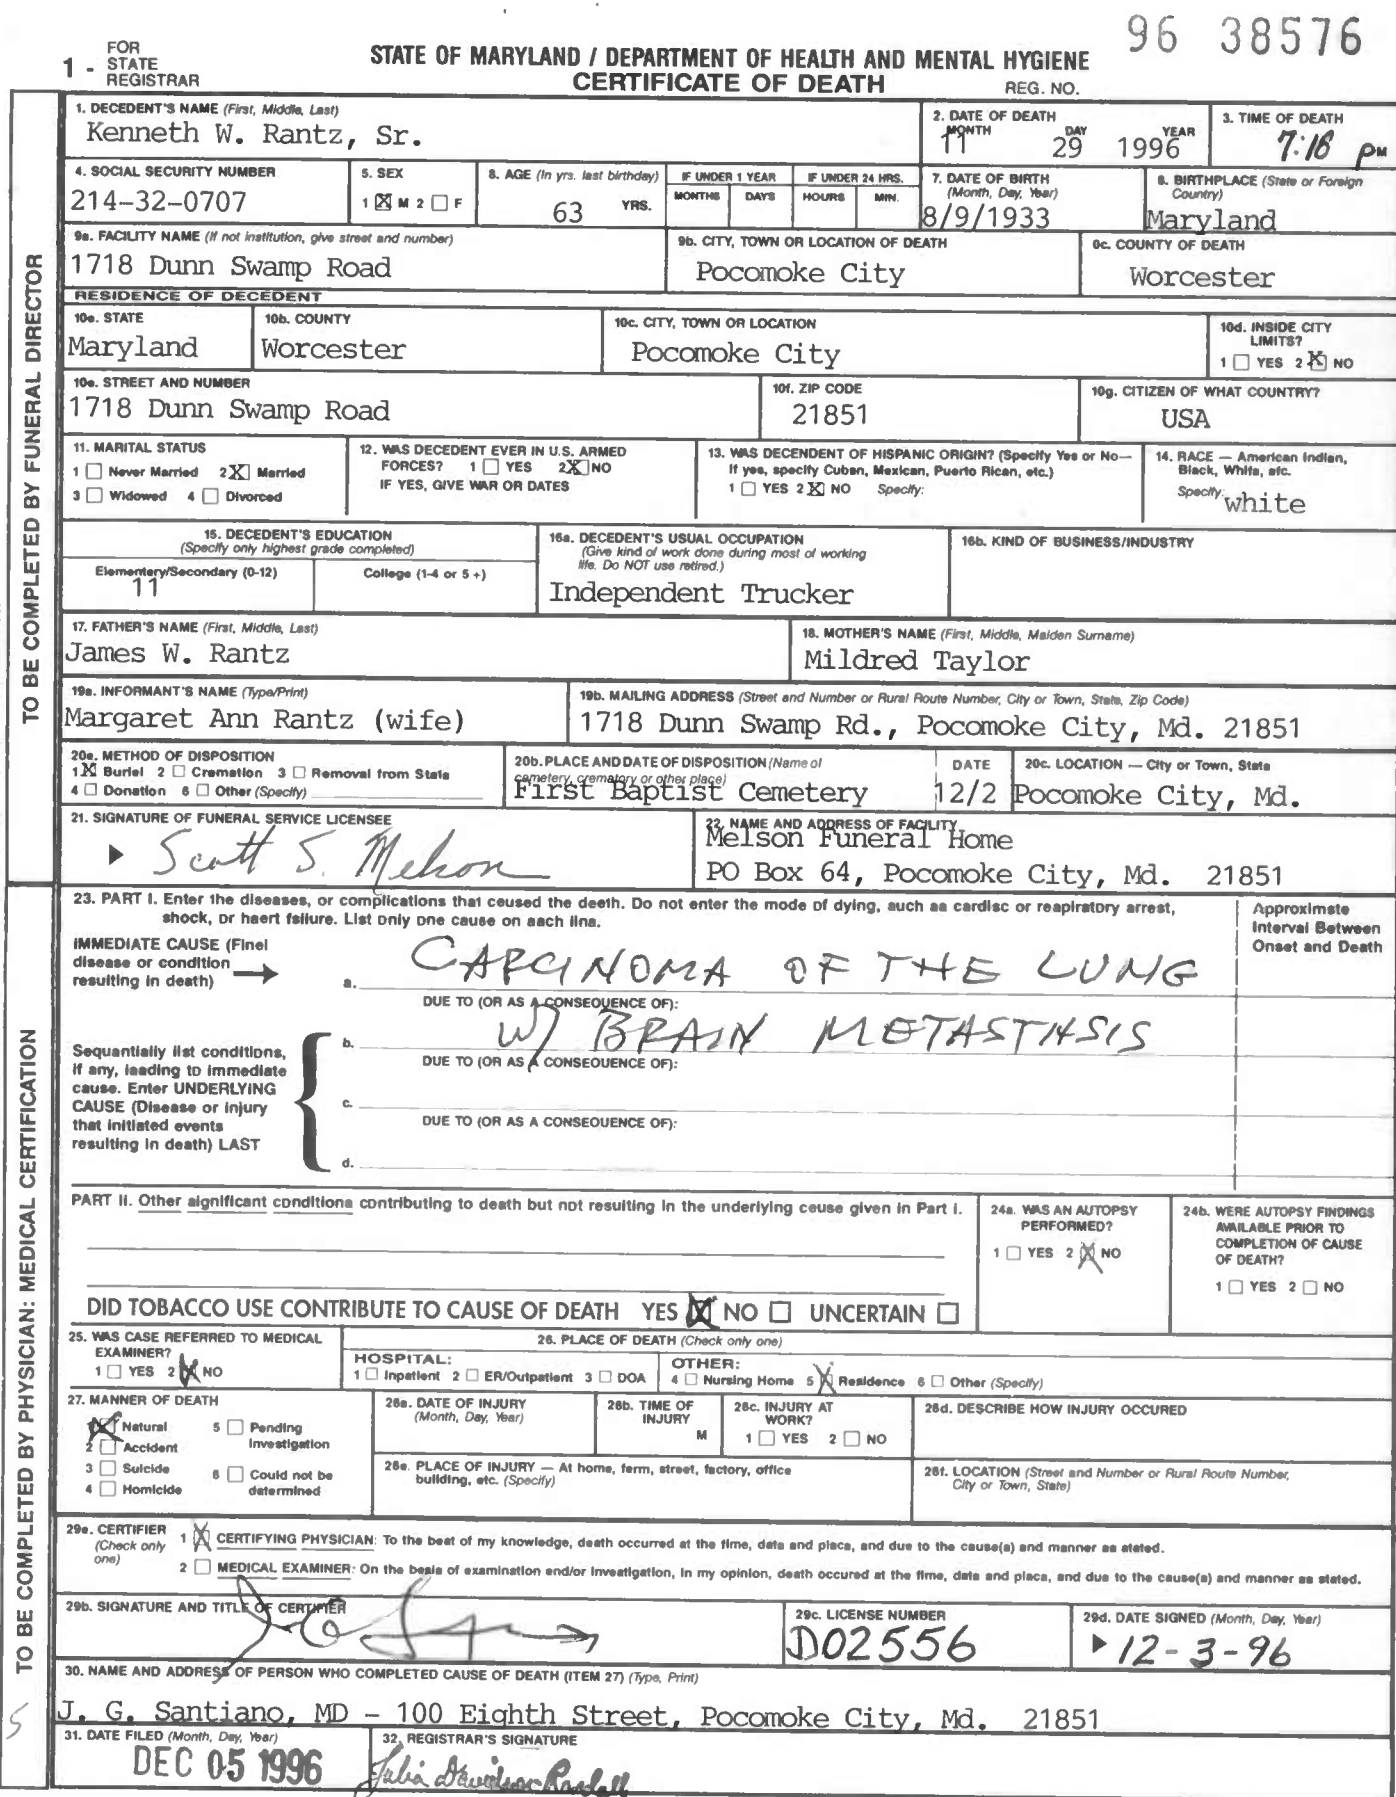 96 38576
1 - FOR STATE REGISTRAR
STATE OF MARYLAND / DEPARTMENT OF HEALTH AND MENTAL HYGIENE
CERTIFICATE OF DEATH
REG. NO.
TO BE COMPLETED BY FUNERAL DIRECTOR
1. DECEDENT'S NAME (First, Middle, Last)
Kenneth W. Rantz, Sr.
2. DATE OF DEATH
MONTH DAY YEAR
11 29 1996
3. TIME OF DEATH
PM
4. SOCIAL SECURITY NUMBER
214-32-0707
5. SEX
1 ☒ M 2 ☐ F
8. AGE (In yrs. last birthday)
63 YRS.
IF UNDER 1 YEAR
MONTHS DAYS
IF UNDER 24 HRS.
HOURS MIN.
7. DATE OF BIRTH
(Month, Day, Year)
8/9/1933
8. BIRTHPLACE (State or Foreign
Country)
Maryland
9a. FACILITY NAME (If not institution, give street and number)
1718 Dunn Swamp Road
9b. CITY, TOWN OR LOCATION OF DEATH
Pocomoke City
9c. COUNTY OF DEATH
Worcester
RESIDENCE OF DECEDENT
10a. STATE
Maryland
10b. COUNTY
Worcester
10c. CITY, TOWN OR LOCATION
Pocomoke City
10d. INSIDE CITY
LIMITS?
1 ☐ YES 2 ☒ NO
10e. STREET AND NUMBER
1718 Dunn Swamp Road
10f. ZIP CODE
21851
10g. CITIZEN OF WHAT COUNTRY?
USA
11. MARITAL STATUS
1 ☐ Never Married 2 ☒ Married
3 ☐ Widowed 4 ☐ Divorced
12. WAS DECEDENT EVER IN U.S. ARMED
FORCES? 1 ☐ YES 2 ☒ NO
IF YES, GIVE WAR OR DATES
13. WAS DECENDENT OF HISPANIC ORIGIN? (Specify Yes or No—
If yes, specify Cuban, Mexican, Puerto Rican, etc.)
1 ☐ YES 2 ☒ NO Specify:
14. RACE — American Indian,
Black, White, etc.
Specify: white
15. DECEDENT'S EDUCATION
(Specify only highest grade completed)
Elementary/Secondary (0-12)
11
College (1-4 or 5 +)
16a. DECEDENT'S USUAL OCCUPATION
(Give kind of work done during most of working
life. Do NOT use retired.)
Independent Trucker
16b. KIND OF BUSINESS/INDUSTRY
17. FATHER'S NAME (First, Middle, Last)
James W. Rantz
18. MOTHER'S NAME (First, Middle, Maiden Surname)
Mildred Taylor
19a. INFORMANT'S NAME (Type/Print)
Margaret Ann Rantz (wife)
19b. MAILING ADDRESS (Street and Number or Rural Route Number, City or Town, State, Zip Code)
1718 Dunn Swamp Rd., Pocomoke City, Md. 21851
20a. METHOD OF DISPOSITION
1 ☒ Burial 2 ☐ Cremation 3 ☐ Removal from State
4 ☐ Donation 6 ☐ Other (Specify)
20b. PLACE AND DATE OF DISPOSITION (Name of
cemetery, crematory or other place)
First Baptist Cemetery
DATE
12/2
20c. LOCATION — City or Town, State
Pocomoke City, Md.
21. SIGNATURE OF FUNERAL SERVICE LICENSEE
Scott S. Melson
22. NAME AND ADDRESS OF FACILITY
Melson Funeral Home
PO Box 64, Pocomoke City, Md. 21851
TO BE COMPLETED BY PHYSICIAN: MEDICAL CERTIFICATION
23. PART I. Enter the diseases, or complications that caused the death. Do not enter the mode of dying, such as cardiac or respiratory arrest,
shock, or heart failure. List only one cause on each line.
Approximate
Interval Between
Onset and Death
IMMEDIATE CAUSE (Final
disease or condition
resulting in death)
a. CARCINOMA OF THE LUNG
DUE TO (OR AS A CONSEQUENCE OF):
b. W/ BRAIN METASTASIS
DUE TO (OR AS A CONSEQUENCE OF):
Sequentially list conditions,
if any, leading to immediate
cause. Enter UNDERLYING
CAUSE (Disease or injury
that initiated events
resulting in death) LAST
c.
DUE TO (OR AS A CONSEQUENCE OF):
d.
PART II. Other significant conditions contributing to death but not resulting in the underlying cause given in Part I.
24a. WAS AN AUTOPSY
PERFORMED?
1 ☐ YES 2 ☒ NO
24b. WERE AUTOPSY FINDINGS
AVAILABLE PRIOR TO
COMPLETION OF CAUSE
OF DEATH?
1 ☐ YES 2 ☐ NO
DID TOBACCO USE CONTRIBUTE TO CAUSE OF DEATH YES ☒ NO ☐ UNCERTAIN ☐
25. WAS CASE REFERRED TO MEDICAL
EXAMINER?
1 ☐ YES 2 ☒ NO
26. PLACE OF DEATH (Check only one)
HOSPITAL:
1 ☐ Inpatient 2 ☐ ER/Outpatient 3 ☐ DOA
OTHER:
4 ☐ Nursing Home 5 ☒ Residence 6 ☐ Other (Specify)
27. MANNER OF DEATH
1 ☒ Natural 5 ☐ Pending
Investigation
2 ☐ Accident
3 ☐ Suicide 6 ☐ Could not be
determined
4 ☐ Homicide
28a. DATE OF INJURY
(Month, Day, Year)
28b. TIME OF
INJURY
M
28c. INJURY AT
WORK?
1 ☐ YES 2 ☐ NO
28d. DESCRIBE HOW INJURY OCCURED
28e. PLACE OF INJURY — At home, farm, street, factory, office
building, etc. (Specify)
28f. LOCATION (Street and Number or Rural Route Number,
City or Town, State)
29a. CERTIFIER
(Check only
one)
1 ☒ CERTIFYING PHYSICIAN: To the best of my knowledge, death occurred at the time, date and place, and due to the cause(s) and manner as stated.
2 ☐ MEDICAL EXAMINER: On the basis of examination and/or investigation, in my opinion, death occured at the time, date and place, and due to the cause(s) and manner as stated.
29b. SIGNATURE AND TITLE OF CERTIFIER
29c. LICENSE NUMBER
D02556
29d. DATE SIGNED (Month, Day, Year)
12-3-96
30. NAME AND ADDRESS OF PERSON WHO COMPLETED CAUSE OF DEATH (ITEM 27) (Type, Print)
J. G. Santiano, MD - 100 Eighth Street, Pocomoke City, Md. 21851
5
31. DATE FILED (Month, Day, Year)
DEC 05 1996
32. REGISTRAR'S SIGNATURE
Julia Davidson-Randall